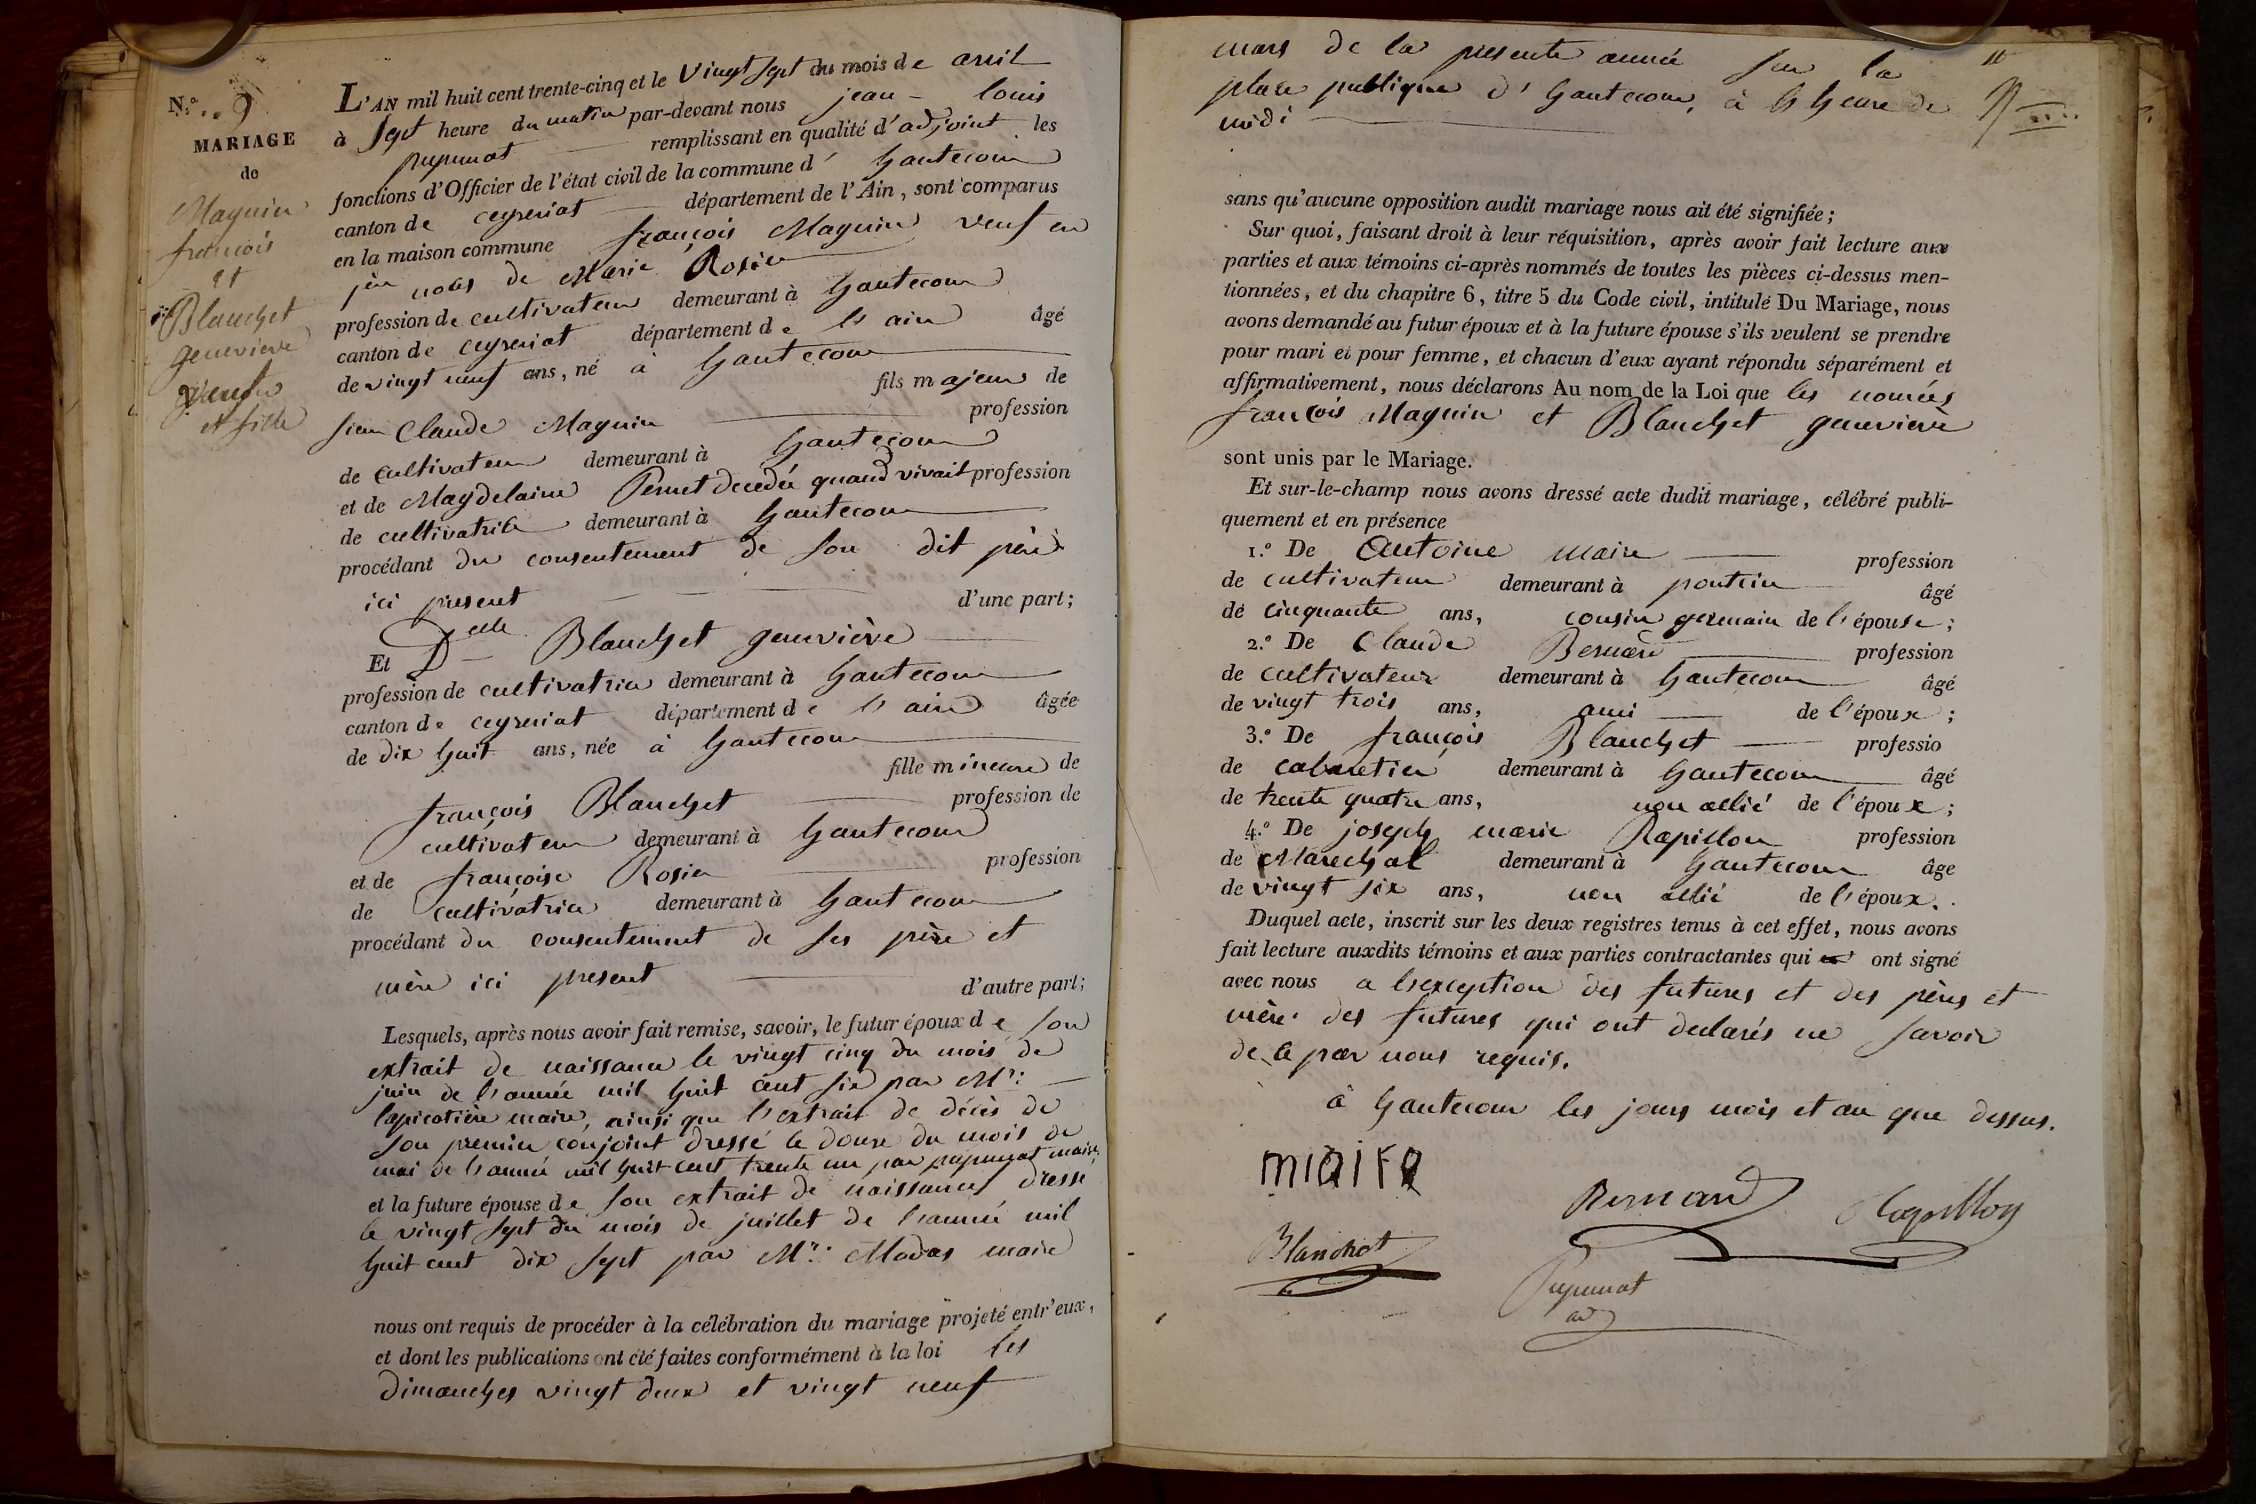 N.° 9
MARIAGE
de
Maguin
françois
et
Blanchet
genevieve
veuf
et fille
L'AN mil huit cent trente-cinq et le vingt sept du mois de avril
à sept heure du matin par-devant nous jean - louis
pupunat remplissant en qualité d'adjoint les
fonctions d'Officier de l'état civil de la commune d' hautecour
canton de ceyseriat département de l'Ain, sont comparus
en la maison commune françois Maguin veuf en
noces de Marie Rosier
profession de cultivateur demeurant à hautecour
canton de ceyseriat département de l'ain âgé
de vingt neuf ans, né à hautecour
fils majeur de
sieur Claude Maguin profession
de cultivateur demeurant à hautecour
et de Magdelaine Pernet decedée quand vivait profession
de cultivatrice demeurant à hautecour
procédant du consentement de son dit père
ici present d'une part;
Et Delle Blanchet geneviève
profession de cultivatrice demeurant à hautecour
canton de ceyseriat département de l'ain âgée
de dix huit ans, née à hautecour
fille mineure de
françois Blanchet profession de
cultivateur demeurant à hautecour
et de françoise Rosier profession
de cultivatrice demeurant à hautecour
procédant du consentement de ses père et
mère ici present d'autre part;
Lesquels, après nous avoir fait remise, savoir, le futur époux de son
extrait de naissance le vingt cinq du mois de
juin de l'année mil huit cent six par Mr:
lapicotière maire, ainsi que l'extrait de décès de
son premier conjoint dressé le douze du mois de
mai de l'année mil huit cent trente un par pupunat maire,
et la future épouse de son extrait de naissance dressé
le vingt sept du mois de juillet de l'année mil
huit cent dix sept par Mr: Modas maire
nous ont requis de procéder à la célébration du mariage projeté entr'eux,
et dont les publications ont été faites conformément à la loi les
dimanches vingt deux et vingt neuf
mars de la presente année sur la
place publique d'hautecour, à l'heure de
midi
sans qu'aucune opposition audit mariage nous ait été signifiée;
Sur quoi, faisant droit à leur réquisition, après avoir fait lecture aux
parties et aux témoins ci-après nommés de toutes les pièces ci-dessus men-
tionnées, et du chapitre 6, titre 5 du Code civil, intitulé Du Mariage, nous
avons demandé au futur époux et à la future épouse s'ils veulent se prendre
pour mari et pour femme, et chacun d'eux ayant répondu séparément et
affirmativement, nous déclarons Au nom de la Loi que les només
françois Maguin et Blanchet genevieve
sont unis par le Mariage.
Et sur-le-champ nous avons dressé acte dudit mariage, célébré publi-
quement et en présence
1.° De Antoine maire profession
de cultivateur demeurant à poncin âgé
de cinquante ans, cousin germain de l'épouse;
2.° De Claude Bernard profession
de cultivateur demeurant à hautecour âgé
de vingt trois ans, ami de l'époux;
3.° De françois Blanchet professio
de cabaretier demeurant à hautecour âgé
de trente quatre ans, non allié de l'époux;
4.° De joseph marie Rapillon profession
de Marechal demeurant à hautecour âge
de vingt six ans, non allié de l'époux.
Duquel acte, inscrit sur les deux registres tenus à cet effet, nous avons
fait lecture auxdits témoins et aux parties contractantes qui ont signé
avec nous a l'exception des futures et des pères et
mère des futures qui ont declarés ne savoir
de ce par nous requis.
à hautecour les jours mois et an que dessus.
maire
Bernard
Rapillon
Blanchet
Pupunat
ad